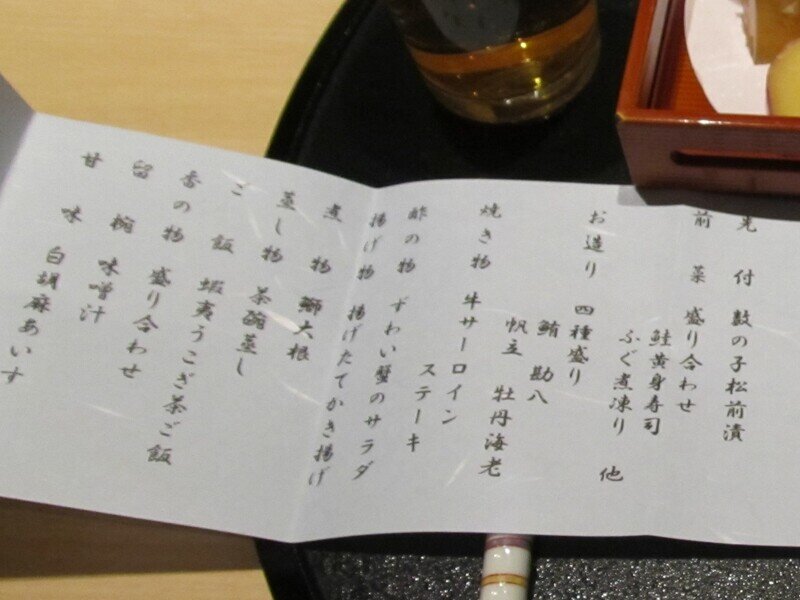 先付 数の子松前漬
前菜 盛り合わせ
鮭黄身寿司
ふぐ煮凍り 他
お造り 四種盛り
鮪 勘八
帆立 牡丹海老
焼き物 牛サーロイン
ステーキ
酢の物 ずわい蟹のサラダ
揚げ物 揚げたてかき揚げ
煮物 鰤大根
蒸し物 茶碗蒸し
ご飯 蝦夷うこぎ茶ご飯
香の物 盛り合わせ
留椀 味噌汁
甘味 白胡麻あいす